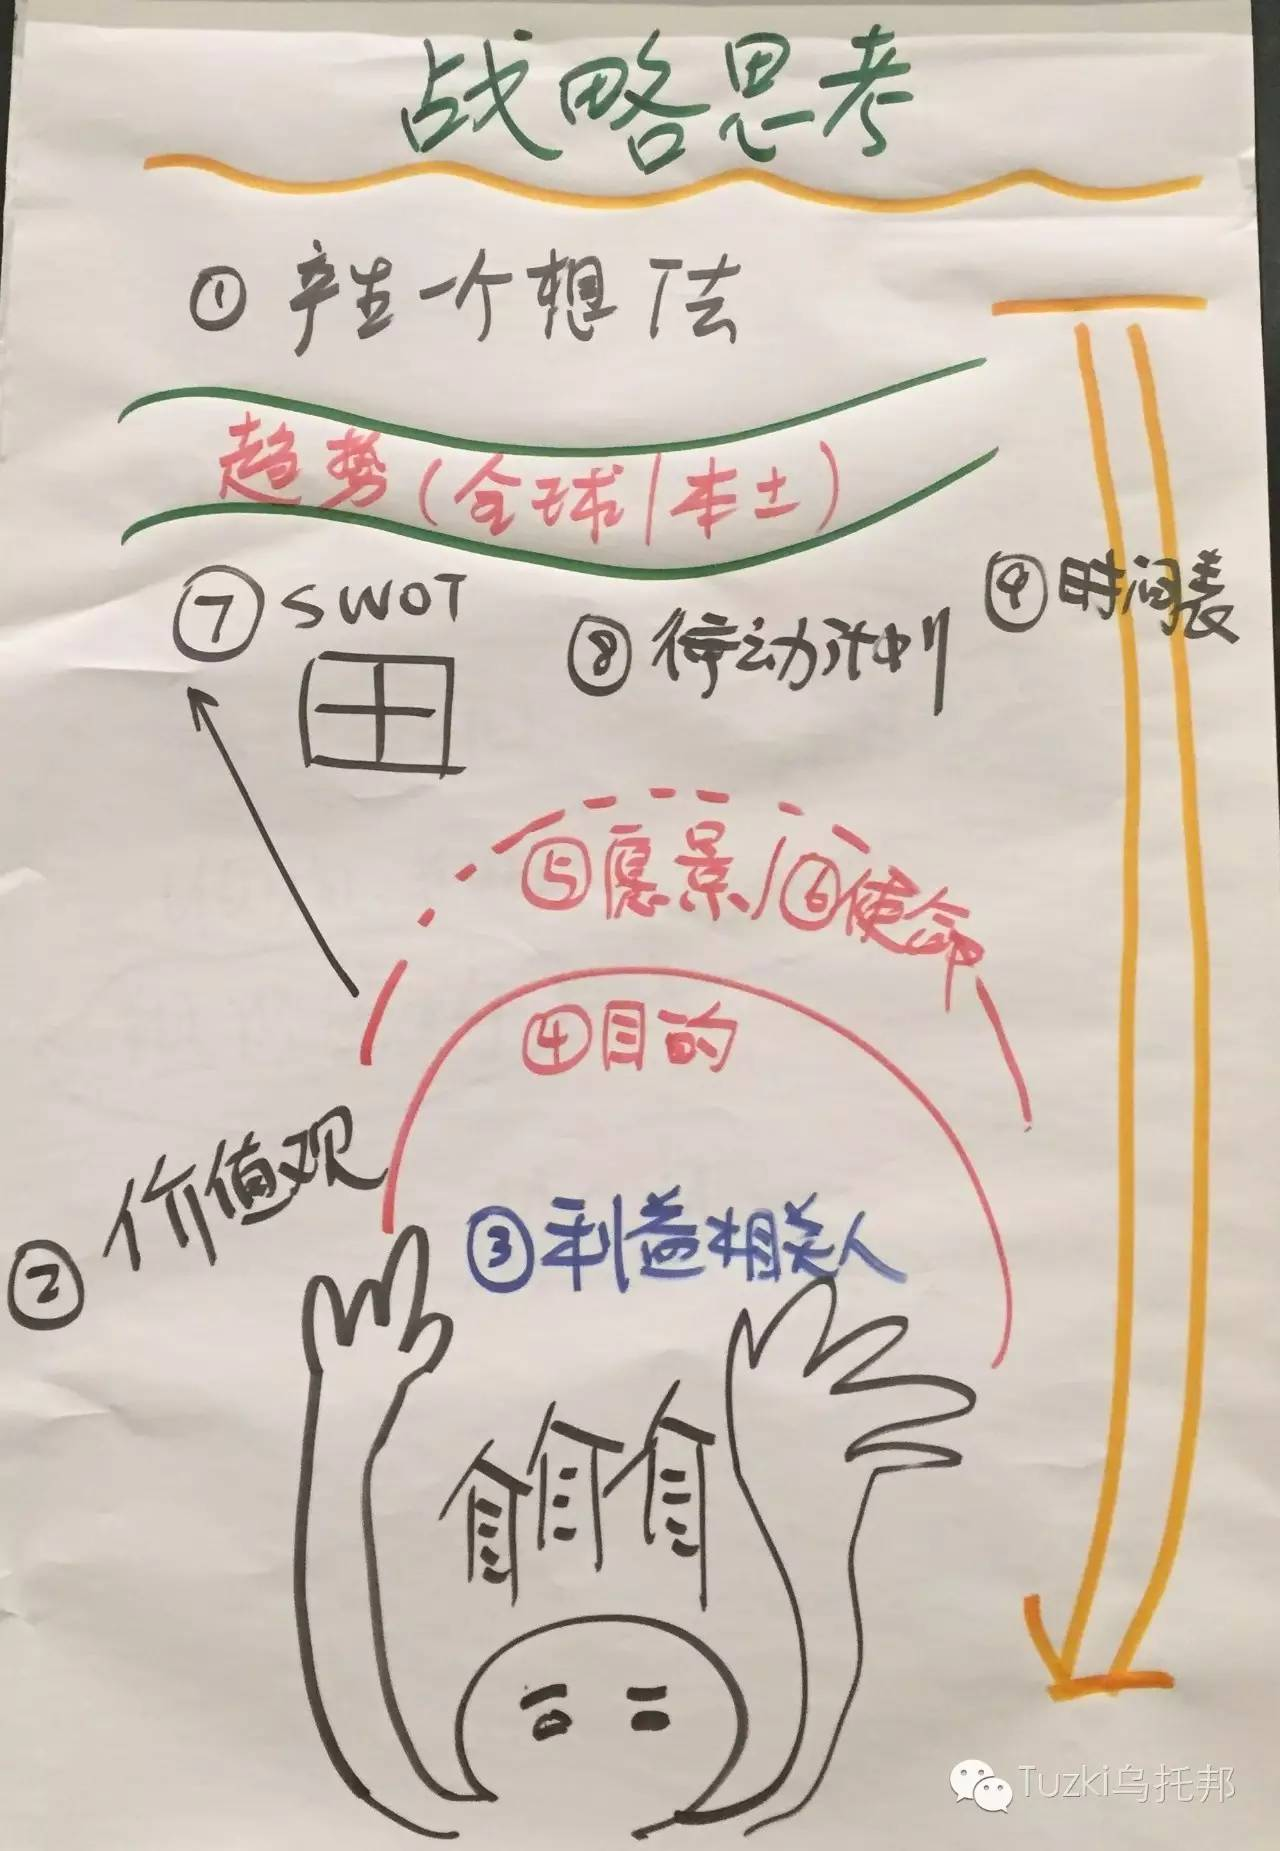 战略思考
① 产生一个想法
趋势(全球/本土)
⑦ SWOT
⑧ 行动计划
⑨ 时间表
⑤愿景/⑥使命
④目的
② 价值观
③利益相关人
Tuzki乌托邦